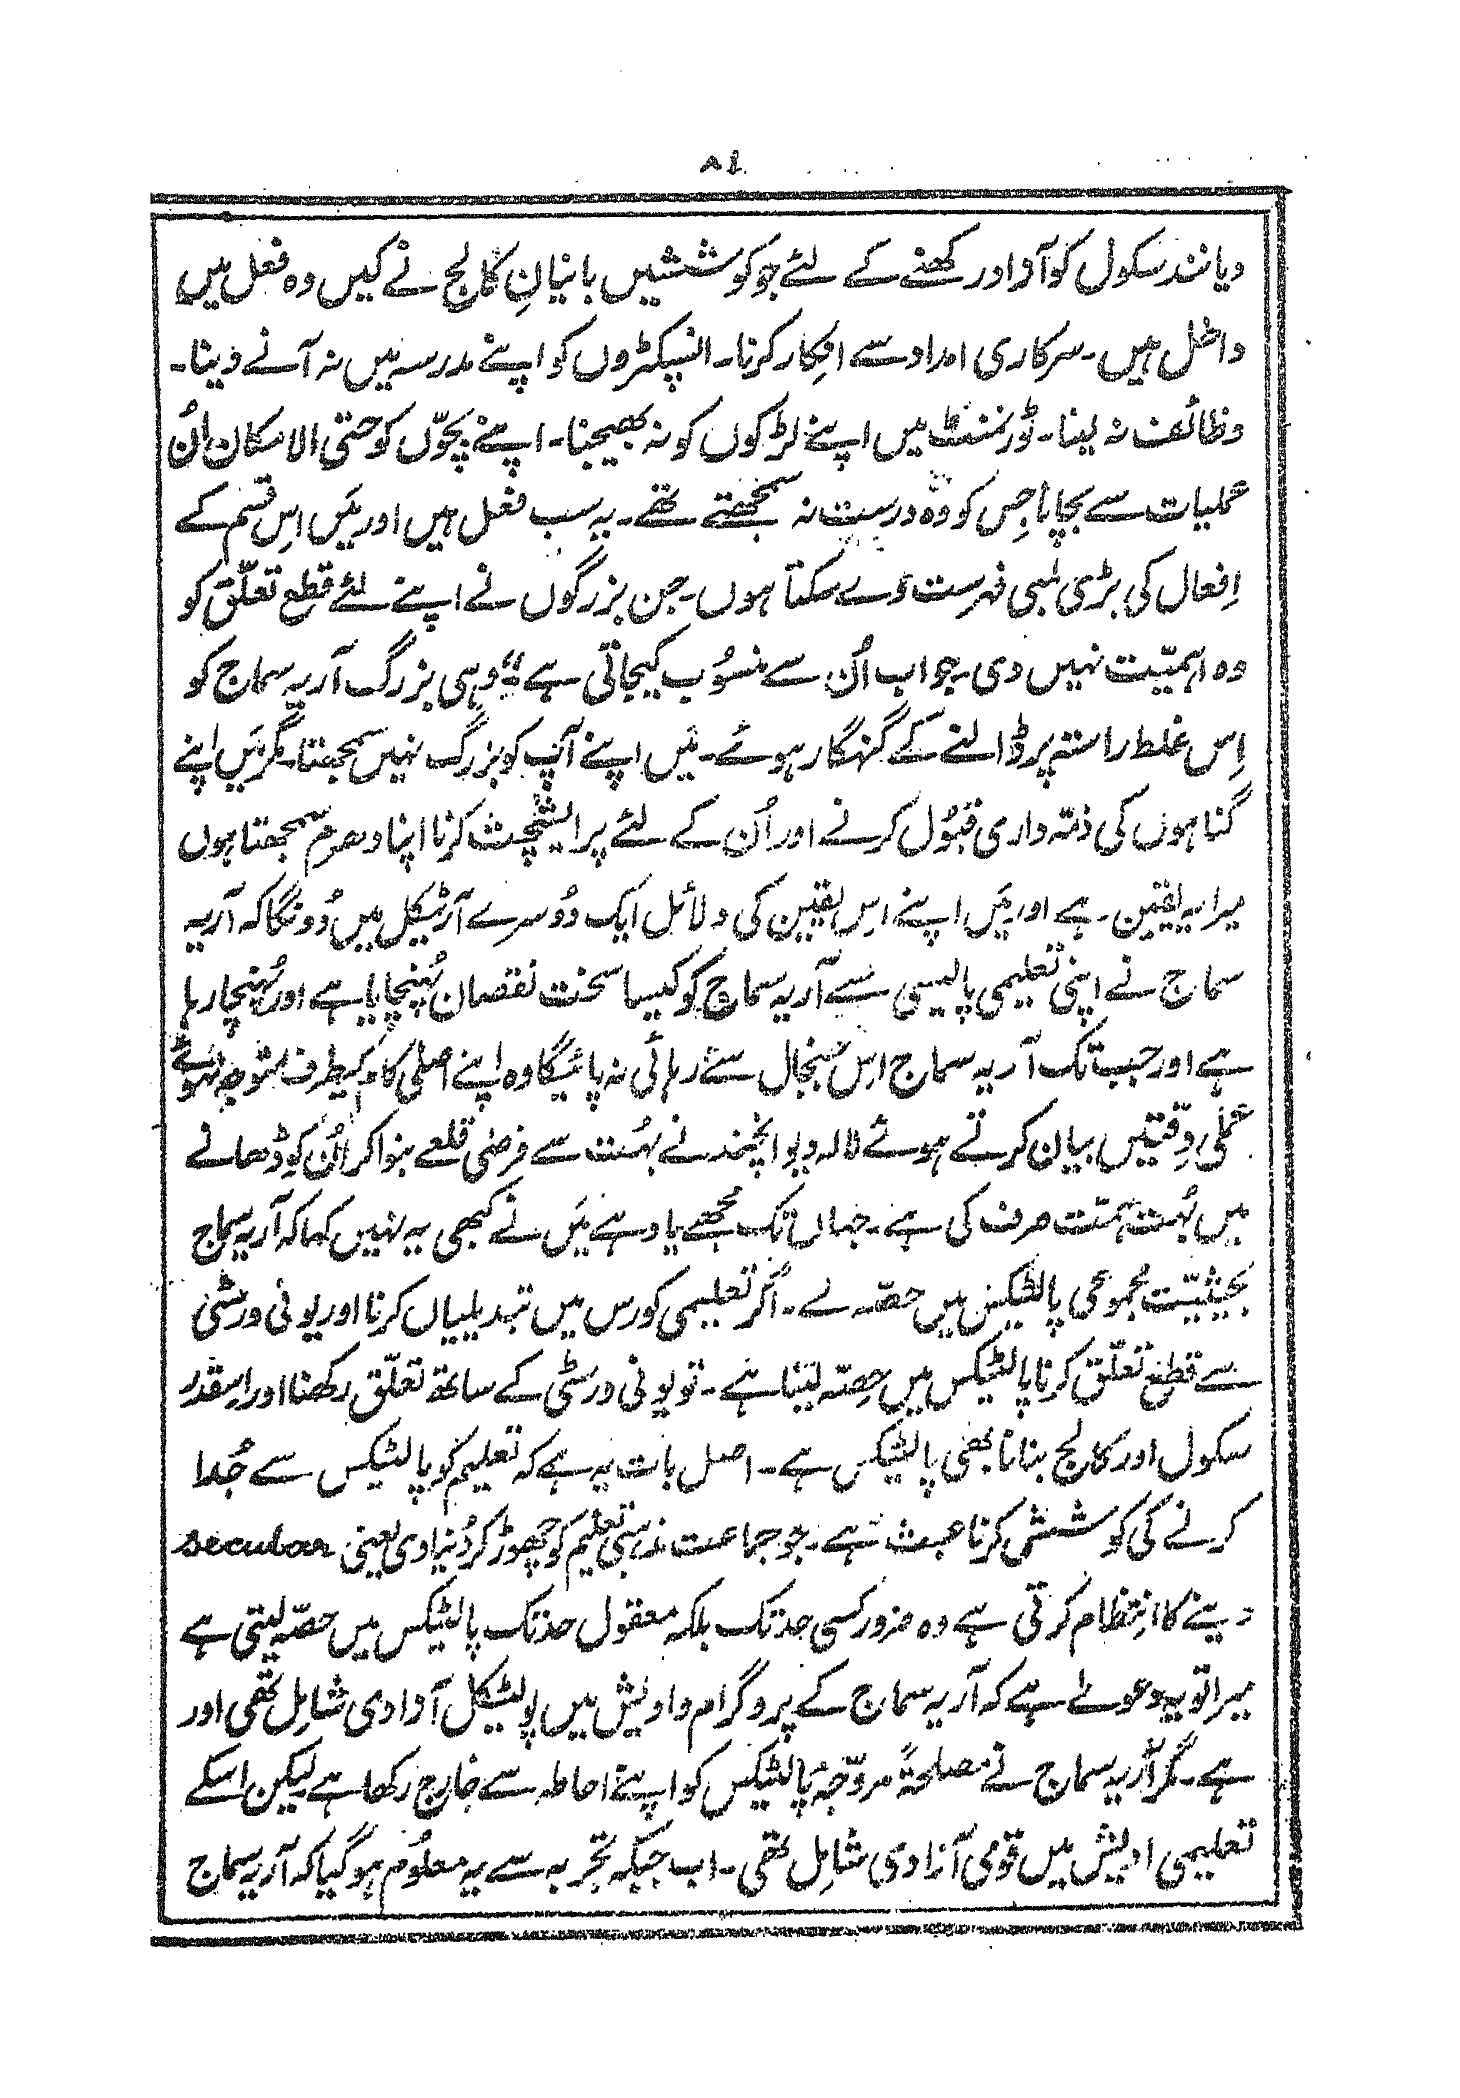 ۸۱
دیانند سکول کو آزاد رکھنے کے لئے جو کوششیں بانیانِ کالج نے کیں وہ فعل میں
داخل ہیں۔ سرکاری امداد سے انکار کرنا۔ انسپکٹروں کو اپنے مدرسہ میں نہ آنے دینا۔
وظائف نہ لینا۔ ٹورنمنٹ میں اپنے لڑکوں کو نہ بھیجنا۔ اپنے بچّوں کو حتی الامکان اُن
عملیات سے بچانا جِس کو وہ درست نہ سمجھتے تھے۔ یہ سب فعل ہیں اور مَیں اِس قسم کے
اِفعال کی بڑی لمبی فہرست دے سکتا ہوں۔ جن بزرگوں نے اپنے لئے قطع تعلّق کو
وہ اہمیّت نہیں دی۔ جو اب اُن سے منسُوب کیجاتی ہے۔ وہی بزرگ آریہ سماج کو
اِس غلط راستہ پر ڈالنے کے گنہگار ہوئے۔ مَیں اپنے آپ کو بزرگ نہیں سمجھتا۔ مگر مَیں اپنے
گناہوں کی ذمّہ داری قبُول کرنے اور اُن کے لئے پرایشچت کرنا اپنا دھرم سمجھتا ہوں
میرا یہ یقین ہے اور مَیں اپنے اس یقین کی دلائل ایک دُوسرے آرٹیکل میں دُونگا کہ آریہ
سماج نے اپنی تعلیمی پالیسی سے آریہ سماج کو کیسا سخت نقصان پُہنچایا ہے اور پُہنچا رہا
ہے اور جب تک آریہ سماج اس جنجال سے رہائی نہ پائیگا وہ اپنے اصلی کام کیطرف متوجہ نہ ہوگا
عملی دِقّتیں بیان کرتے ہوئے لالہ دیوانچند نے بہُت سے فرضی قلعے بنوا کر اُن کو ڈھانے
میں بُہت ہمّت صرف کی ہے۔ جہاں تک مُجھے یاد ہے مَیں نے کبھی یہ نہیں کہا کہ آریہ سماج
بحیثیّت مجموعی پالٹیکس میں حصّہ لے۔ اگر تعلیمی کورس میں تبدیلیاں کرنا اور یونی ورسٹی
سے قطع تعلّق کرنا پالٹیکس میں حِصّہ لینا ہے۔ تو یونی ورسٹی کے ساتھ تعلّق رکھنا اور اِسقدر
سکول اور کالج بنانا بھی پالٹیکس ہے۔ اصل بات یہ ہے کہ تعلیم کو پالٹیکس سے جُدا
کرنے کی کوشش کرنا عبث ہے۔ جو جماعت مذہبی تعلیم کو چھوڑ کر دُنیاوی یعنی secular
دینے کا اِنتظام کرتی ہے وہ ضرور کسی حد تک بلکہ معقول حد تک پالٹیکس میں حصّہ لیتی ہے
میرا تو یہ دعوےٰ ہے کہ آریہ سماج کے پروگرام و ادیش میں پولٹیکل آزادی شامِل تھی اور
ہے۔ مگر آریہ سماج نے مصلحۃً مروّجہ پالٹیکس کو اپنے احاطہ سے خارج رکھا ہے۔ لیکن اسکے
تعلیمی ادیش میں قومی آزادی شامِل تھی۔ اب جبکہ تجربہ سے یہ معلُوم ہو گیا کہ آریہ سماج